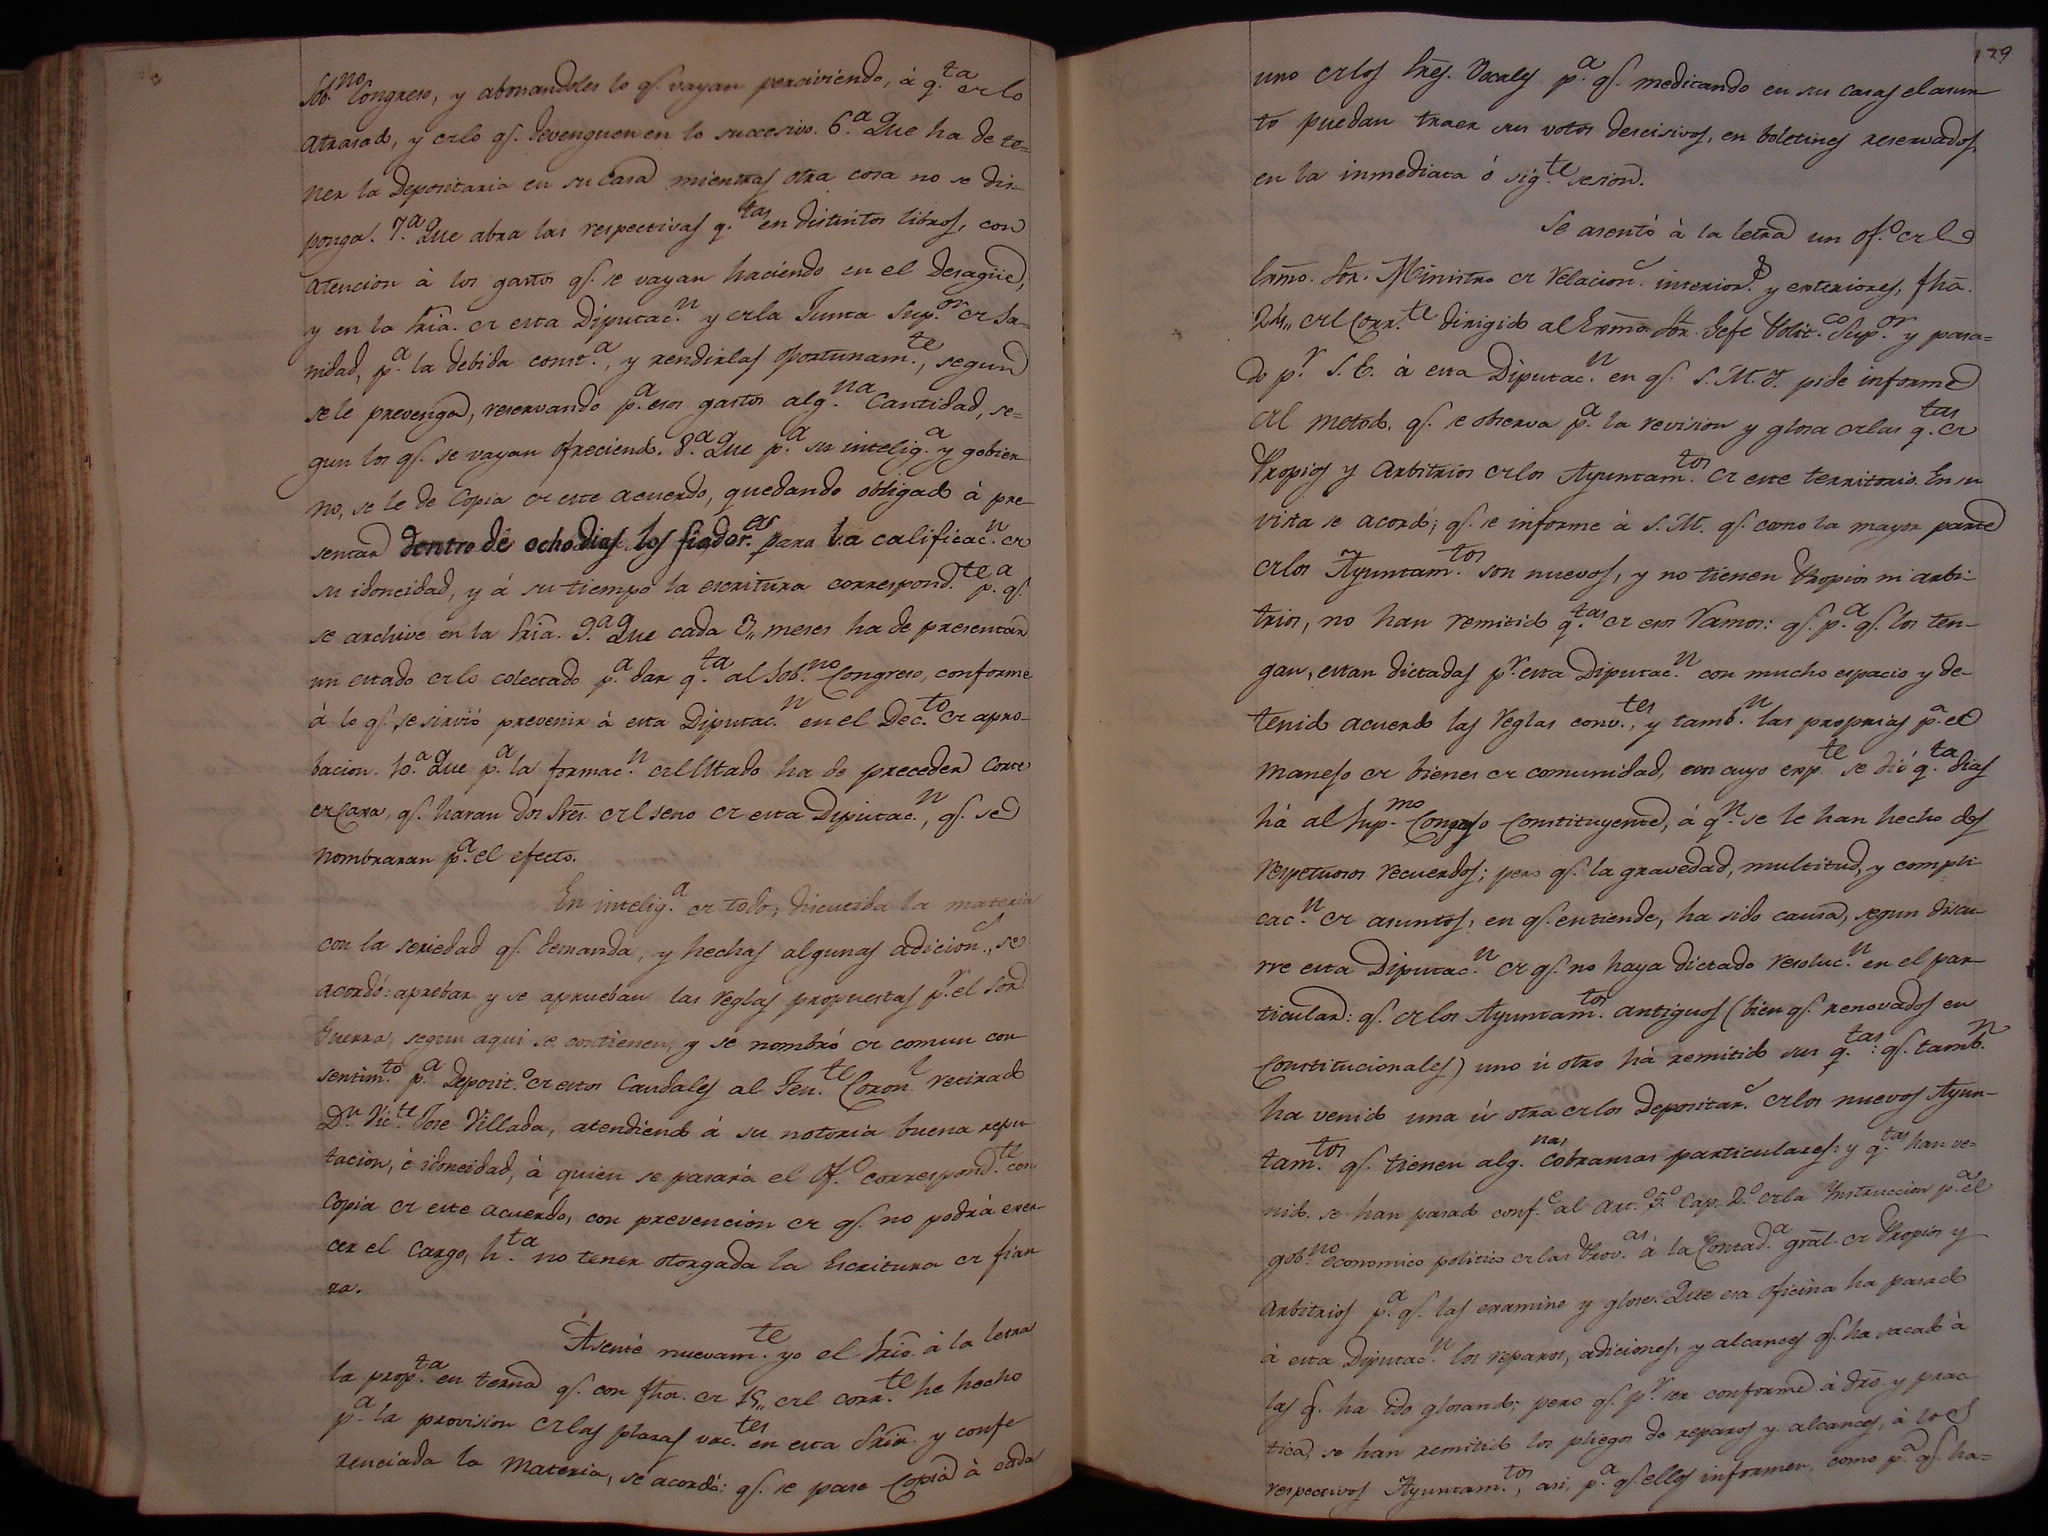 Sob.no Congreso, y abonandoles lo q.e vayan perciviendo, à q.ta de lo
atrasado, y de lo q.e devenguen en lo succesivo. 6.a Que ha de te=
ner la Depositaria en su casa mientras otra cosa no se dis-
ponga. 7.a Que abra las respectivas q.tas en distintos libros, con
atencion à los gastos q.e se vayan haciendo en el Desagüe,
y en la Sría. de esta Diputac.n y de la Junta Sup.or de Sa-
nidad, p.a la debida const.a, y rendirlas oportunam.te, segun
se le prevenga, reservando p.a esos gastos alg.na Cantidad, se=
gun los q.e se vayan ofreciendo. 8.a Que p.a su intelig.a y gobier-
no, se le de Copia de este acuerdo, quedando obligado à pre-
sentar dentro de ocho dias los fiador.es para la calificac.n de
su idoneidad, y á su tiempo la escritura correspond.te p.a q.e
se archive en la Sría. 9.a Que cada 3,, meses ha de presentar
un estado de lo colectado p.a dar q.ta al Sob.no Congreso, conforme
à lo q.e se sirvió prevenir à esta Diputac.n en el Dec.to de apro-
bacion. 10.a Que p.a la formac.n del Estado ha de preceder Corte
de Caxa, q.e haran dos Sres. del seno de esta Diputac.n, q.e se
nombraran p.a el efecto.
En intelig.a de todo, discutida la materia
con la seriedad q.e demanda, y hechas algunas adicion.s, se
acordó: aprobar y se aprueban las reglas propuestas p.r el Sor.
Guerra, segun aqui se contienen, y se nombró de comun con
sentim.to p.a Deposit.o de estos Caudales al Ten.te Coron.l retirado
D.n Vic.te Jose Villada, atendiendo á su notoria buena repu
tacion, è idoneidad, à quien se pasará el Of.o correspond.te con
Copia de este acuerdo, con prevencion de q.e no podrá exer-
cer el Cargo, h.ta no tener otorgada la Escritura de fian
za.
Asenté nuevam.te yo el Srio. à la letra
la prop.ta en terna q.e con fha. de 15,, del corr.te he hecho
p.a la provision de las plazas vac.tes en esta Sría. y confe
renciada la materia, se acordó: q.e se pase Copia à cada
129
uno de los Sres. Vocales p.a q.e meditando en sus casas el asun-
to puedan traer sus votos descisivos, en boletines reservados,
en la inmediata ó sig.te sesion.
Se asentó à la letra un Of.o del
Exmo. Sor. Ministro de relacion.s interior.s y exteriores, fha.
24,, del Corr.te dirigido al Exmo. Sor. Gefe Polit.co Sup.or y pasa=
do p.r S.E. à esta Diputac.n en q.e S.M.I. pide informe
del metodo, q.e se observa p.a la revision y glosa de las q.tas de
Propios y arbitrios de los Ayuntam.tos de este territorio. En su
vista se acordó; q.e se informe à S.M. q.e como la mayor parte
de los Ayuntam.tos son nuevos, y no tienen Propios ni arbi-
trios, no han remitido q.tas de esos Ramos: q.e p.a q.e los ten-
gan, estan dictadas p.r esta Diputac.n con mucho espacio y de-
tenido acuerdo las reglas conv.tes, y tamb.n las proprias p.a el
manejo de bienes de comunidad, con cuyo exp.te se dió q.ta dias
há al Sup.mo Congreso Constituyente, á q.n se le han hecho dos
respetuosos recuerdos; pero q.e la gravedad, multitud, y compli
cac.n de asuntos, en q.e entiende, ha sido causa, segun discu-
rre esta Diputac.n de q.e no haya dictado resoluc.n en el par-
ticular: q.e de los Ayuntam.tos antiguos (bien q.e renovados en
Constitucionales) uno ù otro há remitido sus q.tas: q.e tamb.n
ha venido una ú otra de los Depositar.s de los nuevos Ayun-
tam.tos q.e tienen alg.nas cobranzas particulares: y q.tas han ve-
nido, se han pasado conf.e al Art.o 5.o Cap. 2.o de la Instruccion p.a el
gob.no economico politico de las Prov.as à la Contad.a gral. de Propios y
Arbitrios p.a q.e las examine y glose. Que esa oficina ha pasado
à esta Diputac.n los reparos, adiciones, y alcances q.e ha sacado à
las q.e ha ido glosando; pero q.e p.r ser conforme à dro. y prac
tica, se han remitido los pliegos de reparos y alcances, à los
respectivos Ayuntam.tos, asi, p.a q.e ellos informen, como p.a q.e ha=